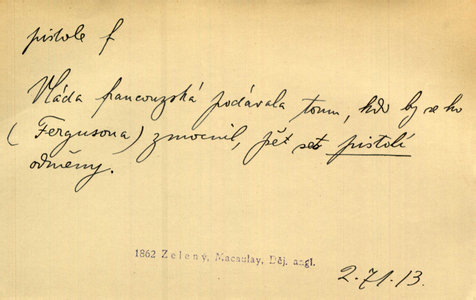 pistole f
Vláda francouzská podávala tomu, kdo by se ho
(Fergusona) zmocnil, pět set pistolí
odměny.
1862 Zelený, Macaulay, Děj. angl.
2.71.13.